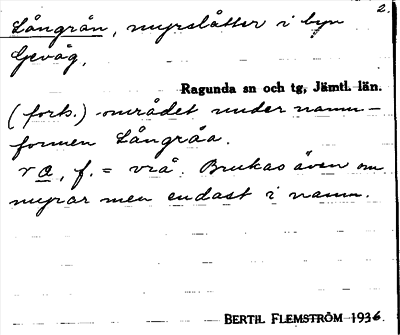 2.
Långrån, myrslåtter i byn
Gevåg,
Ragunda sn och tg, Jämtl. län.
(forts.) området under namn-
formen Långråa.
r a, f. = vrå. Brukas även om
myrar men endast i namn.
BERTIL FLEMSTRÖM 1936